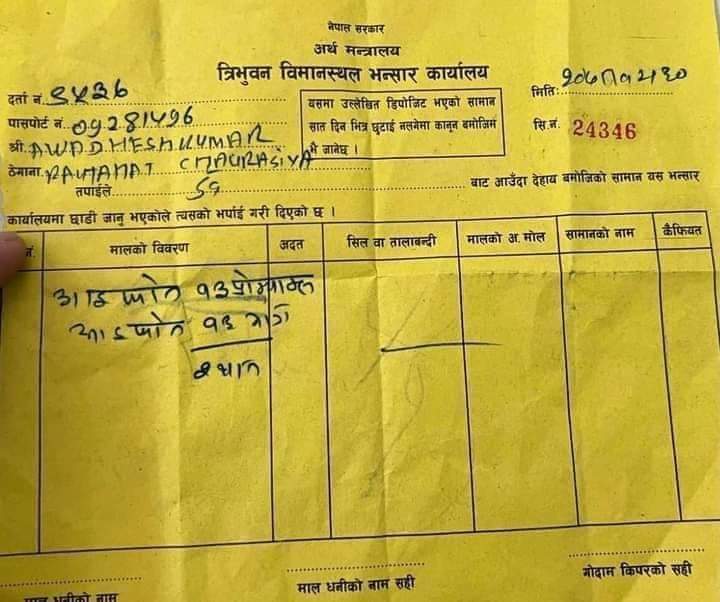 नेपाल सरकार
अर्थ मन्त्रालय
त्रिभुवन विमानस्थल भन्सार कार्यालय
दर्ता नं.
मिति:
पासपोर्ट नं. 09281496
यसमा उल्लेखित डिपोजिट भएको सामान
सात दिन भित्र छुटाई नलगेमा कानून बमोजिम
भै जानेछ ।
सि.नं. 24346
श्री. AWADHESH KUMAR
ठेगाना. RAUTAHAT CHAURASIYA
तपाईले SG बाट आउँदा देहाय बमोजिको सामान यस भन्सार
कार्यालयमा छाडी जानु भएकोले त्यसको भर्पाई गरी दिएको छ ।
नं. मालको विवरण अदत सिल वा तालाबन्दी मालको अ. मोल सामानको नाम कैफियत
आइफोन १३ प्रोम्याक्स
आइफोन १३
२ थान
माल धनीको नाम
माल धनीको नाम सही
गोदाम किपरको सही